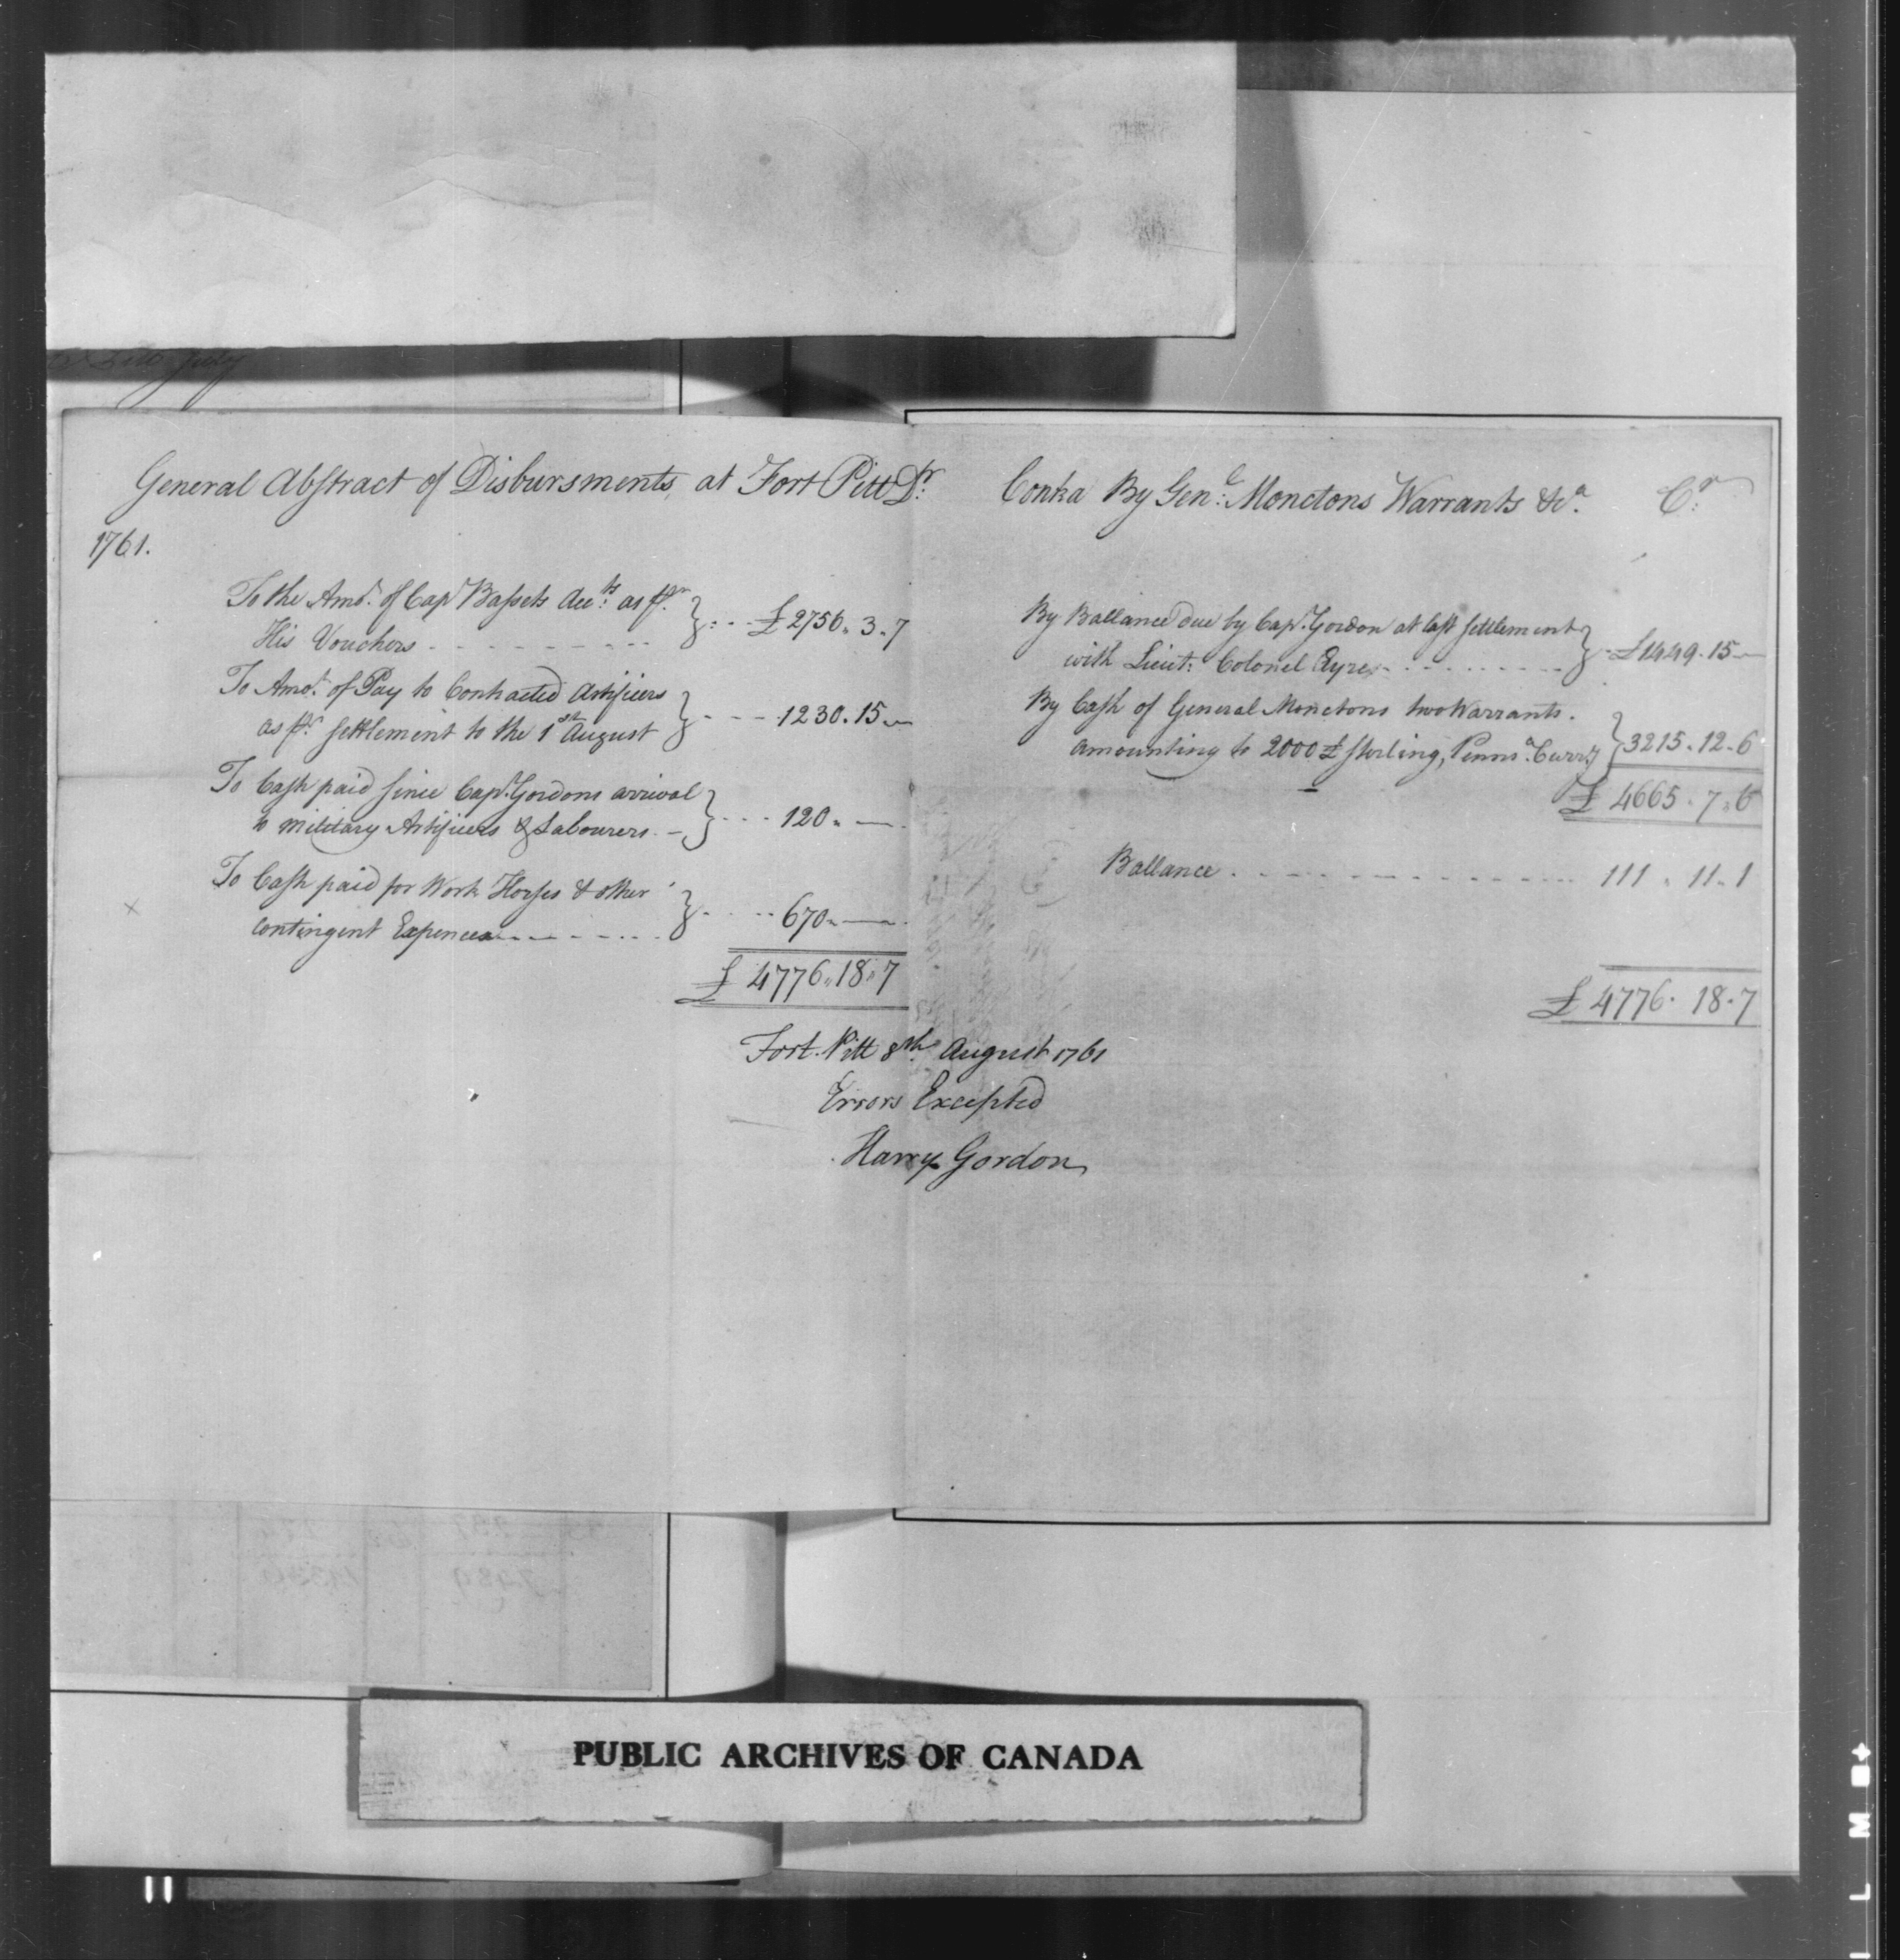 July
General Abstract of Disbursments, at Fort Pitt Dr:
1761.
To the Amot. of Capt Bassets Accts: as pr.
His Vouchers
£2756.. 3.. 7
To Amot. of Pay to Contracted Artificers
as pr. settlement to the 1st August
1230.. 15..—
To Cash paid since Capt. Gordons arrival
to military Artificers & Labourers
120.. —
To Cash paid for Work Horses & other
contingent Expences
670.. —
£ 4776.. 18.. 7
Contra By Genl: Monctons Warrants &ca.
Cr:
By Ballance due by Capt. Gordon at last settlement
with Lieut: Colonel Eyre
£1449.. 15—
By Cash of General Monctons two Warrants.
amounting to 2000 £ sterling, Pennsa. Curry
3215.. 12.. 6
£ 4665.. 7.. 6
Ballance
111.. 11.. 1
£ 4776.. 18.. 7
Fort Pitt 8th August 1761
Errors Excepted
Harry Gordon
PUBLIC ARCHIVES OF CANADA
11
L M